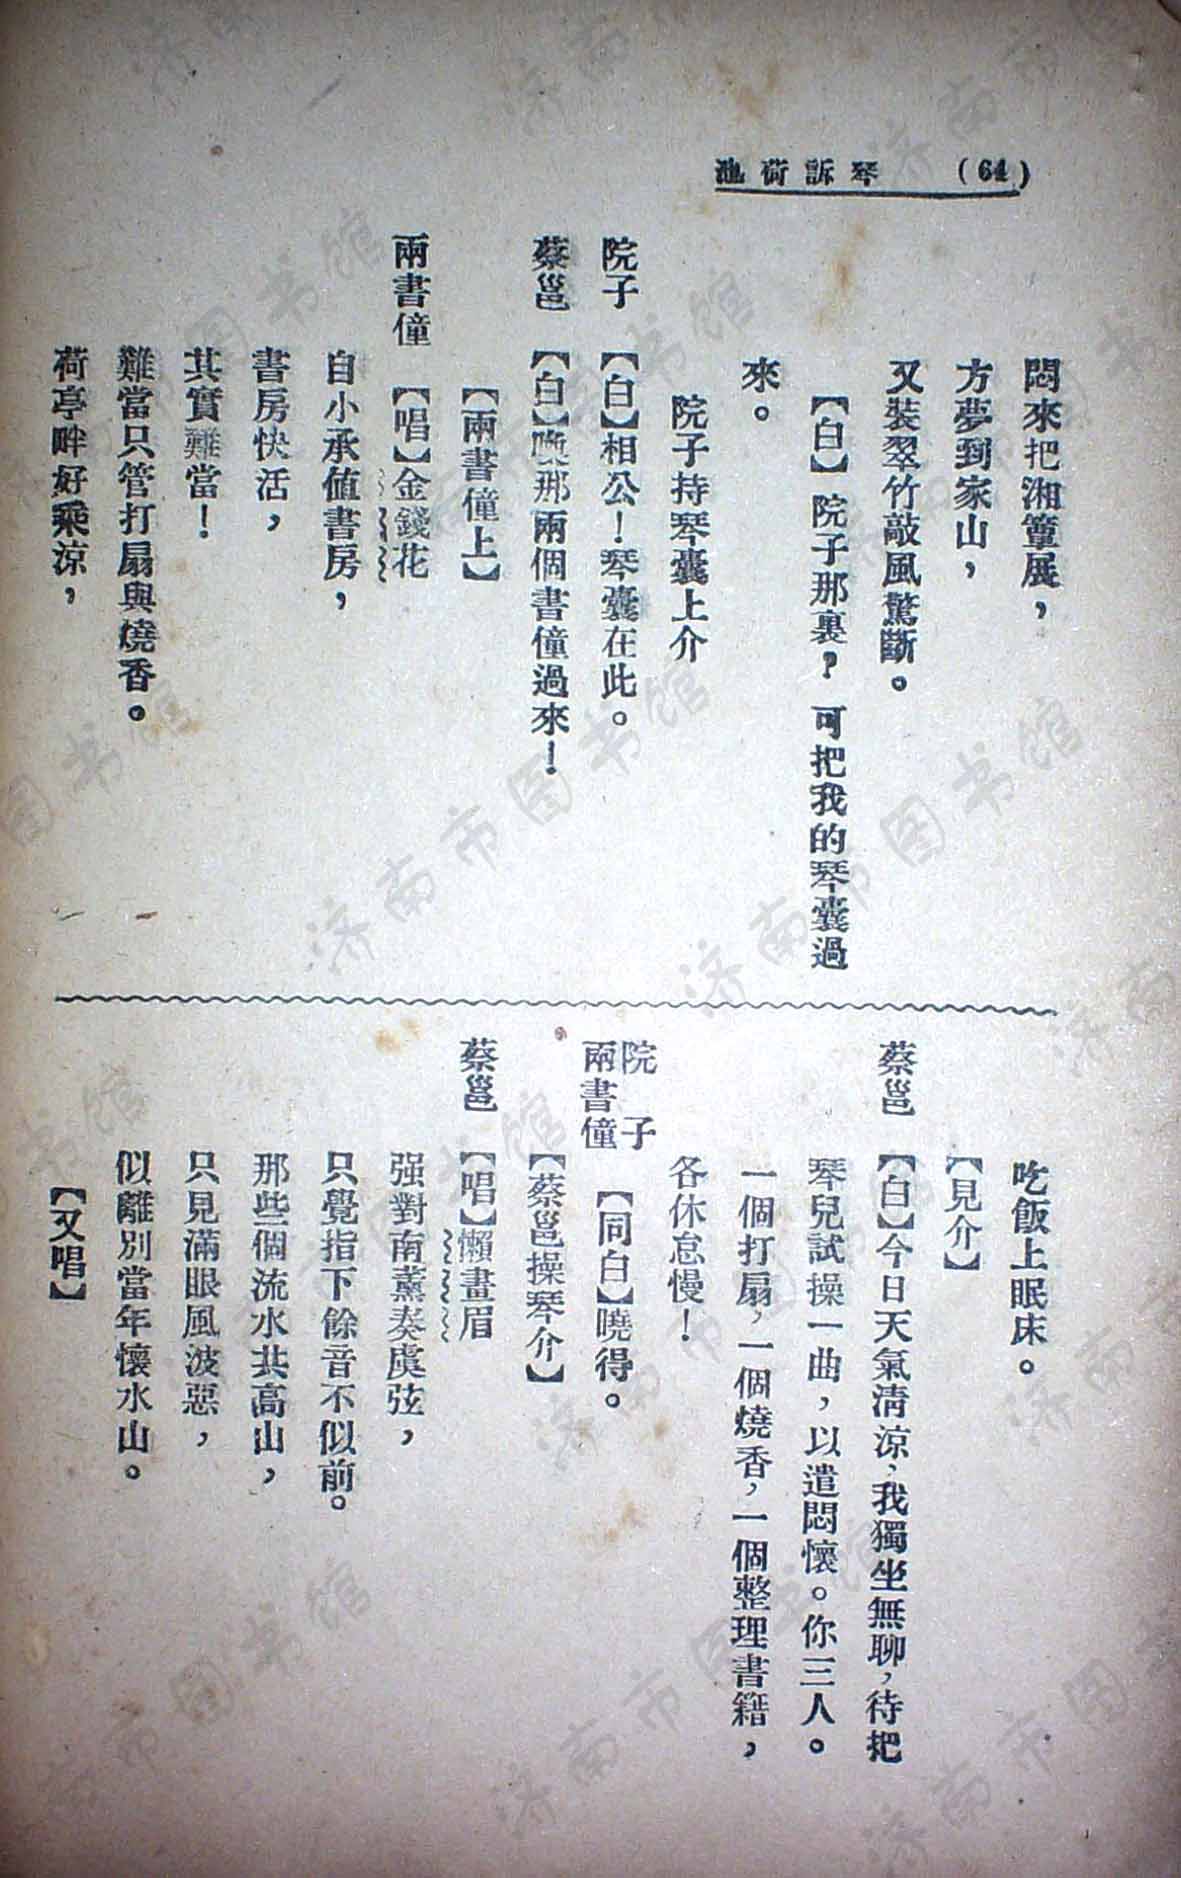 (64) 琴訴荷池
悶來把湘簟展，
方夢到家山，
又裝翠竹敲風驚斷。
【白】院子那裏？可把我的琴囊過
來。
院子持琴囊上介
院子 【白】相公！琴囊在此。
蔡邕 【白】喚那兩個書僮過來！
【兩書僮上】
兩書僮 【唱】金錢花
自小承值書房，
書房快活，
其實難當！
難當只管打扇與燒香。
荷亭畔好乘涼，
吃飯上眠床。
【見介】
蔡邕 【白】今日天氣清涼，我獨坐無聊，待把
琴兒試操一曲，以遣悶懷。你三人。
一個打扇，一個燒香，一個整理書籍，
各休怠慢！
院子
兩書僮 【同白】曉得。
【蔡邕操琴介】
蔡邕 【唱】懶畫眉
强對南薰奏虞弦，
只覺指下餘音不似前。
那些個流水共高山，
只見滿眼風波惡，
似離別當年懷水山。
【又唱】
济南市图书馆